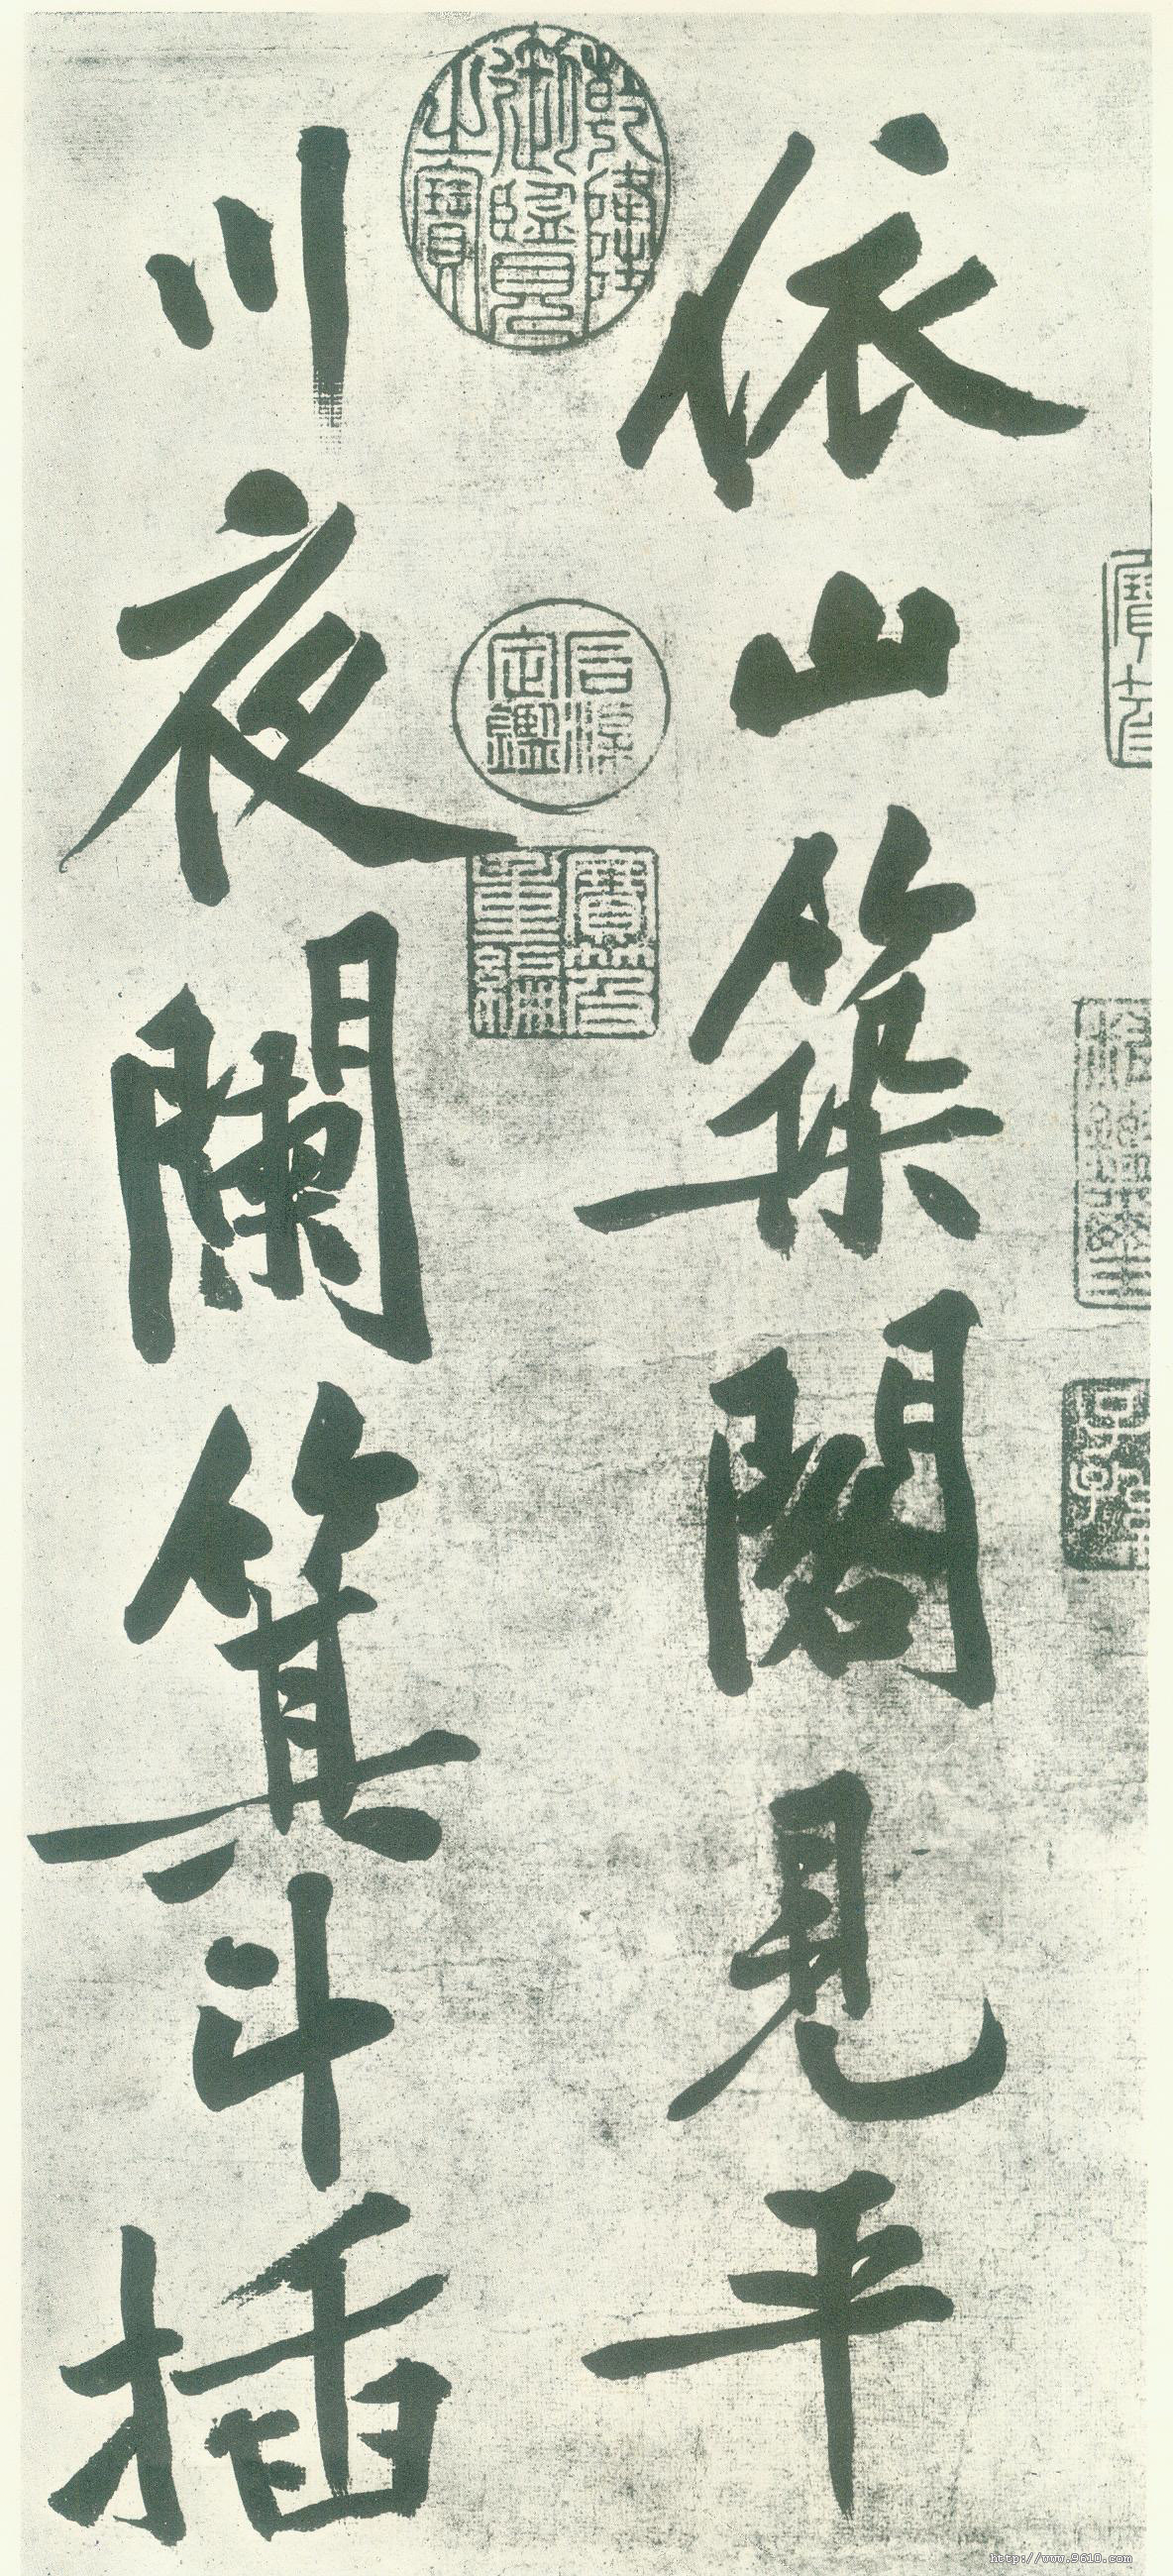 依山築閣見平
川夜闌箕斗插
乾隆御覽之寶
石渠定鑑
寶笈重編
http://www.9610.com